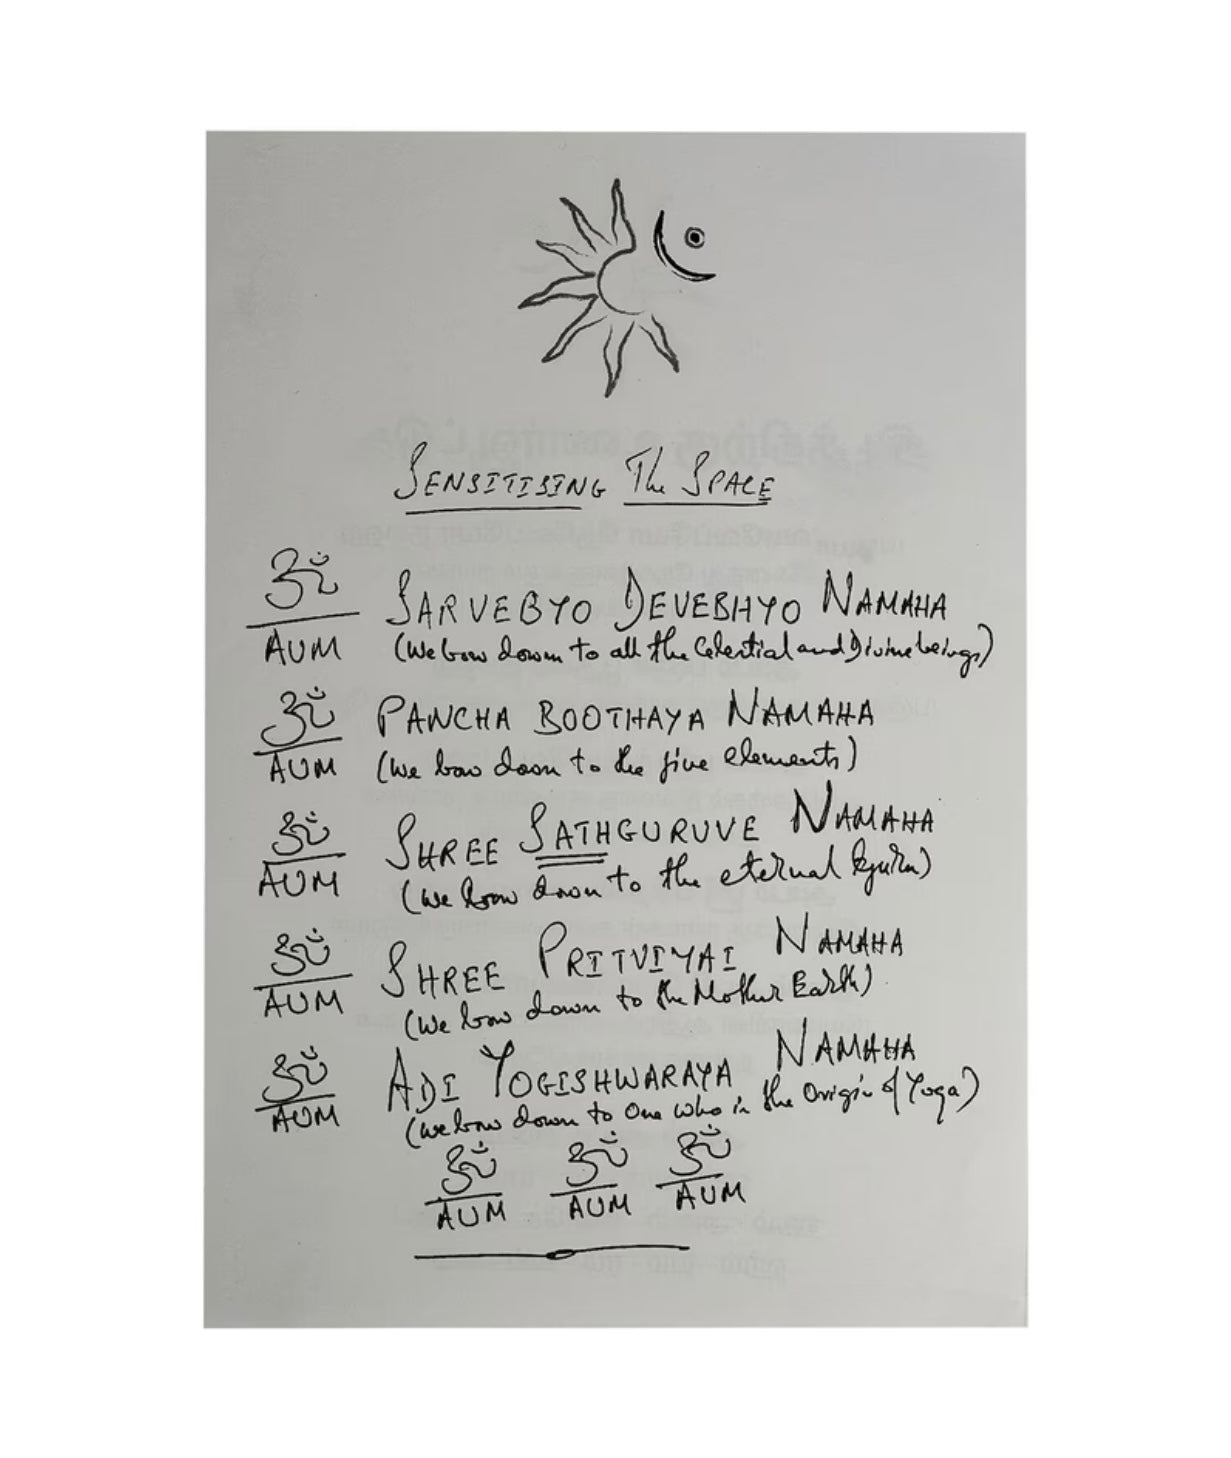 SENSITISING The SPACE
ॐ SARVEBYO DEVEBHYO NAMAHA
AUM (We bow down to all the Celestial and Divine beings)
ॐ PANCHA BOOTHAYA NAMAHA
AUM (We bow down to the five elements)
ॐ SHREE SATHGURUVE NAMAHA
AUM (We bow down to the eternal Guru)
ॐ SHREE PRITVIYAI NAMAHA
AUM (We bow down to the Mother Earth)
ॐ ADI YOGISHWARAYA NAMAHA
AUM (We bow down to One who is the Origin of Yoga)
ॐ ॐ ॐ
AUM AUM AUM